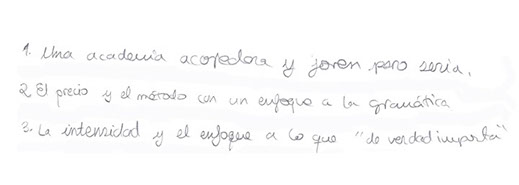 1. Una academia acogedora y joven pero seria.
2 El precio y el método con un enfoque a la gramática
3. La intensidad y el enfoque a lo que "de verdad importa"